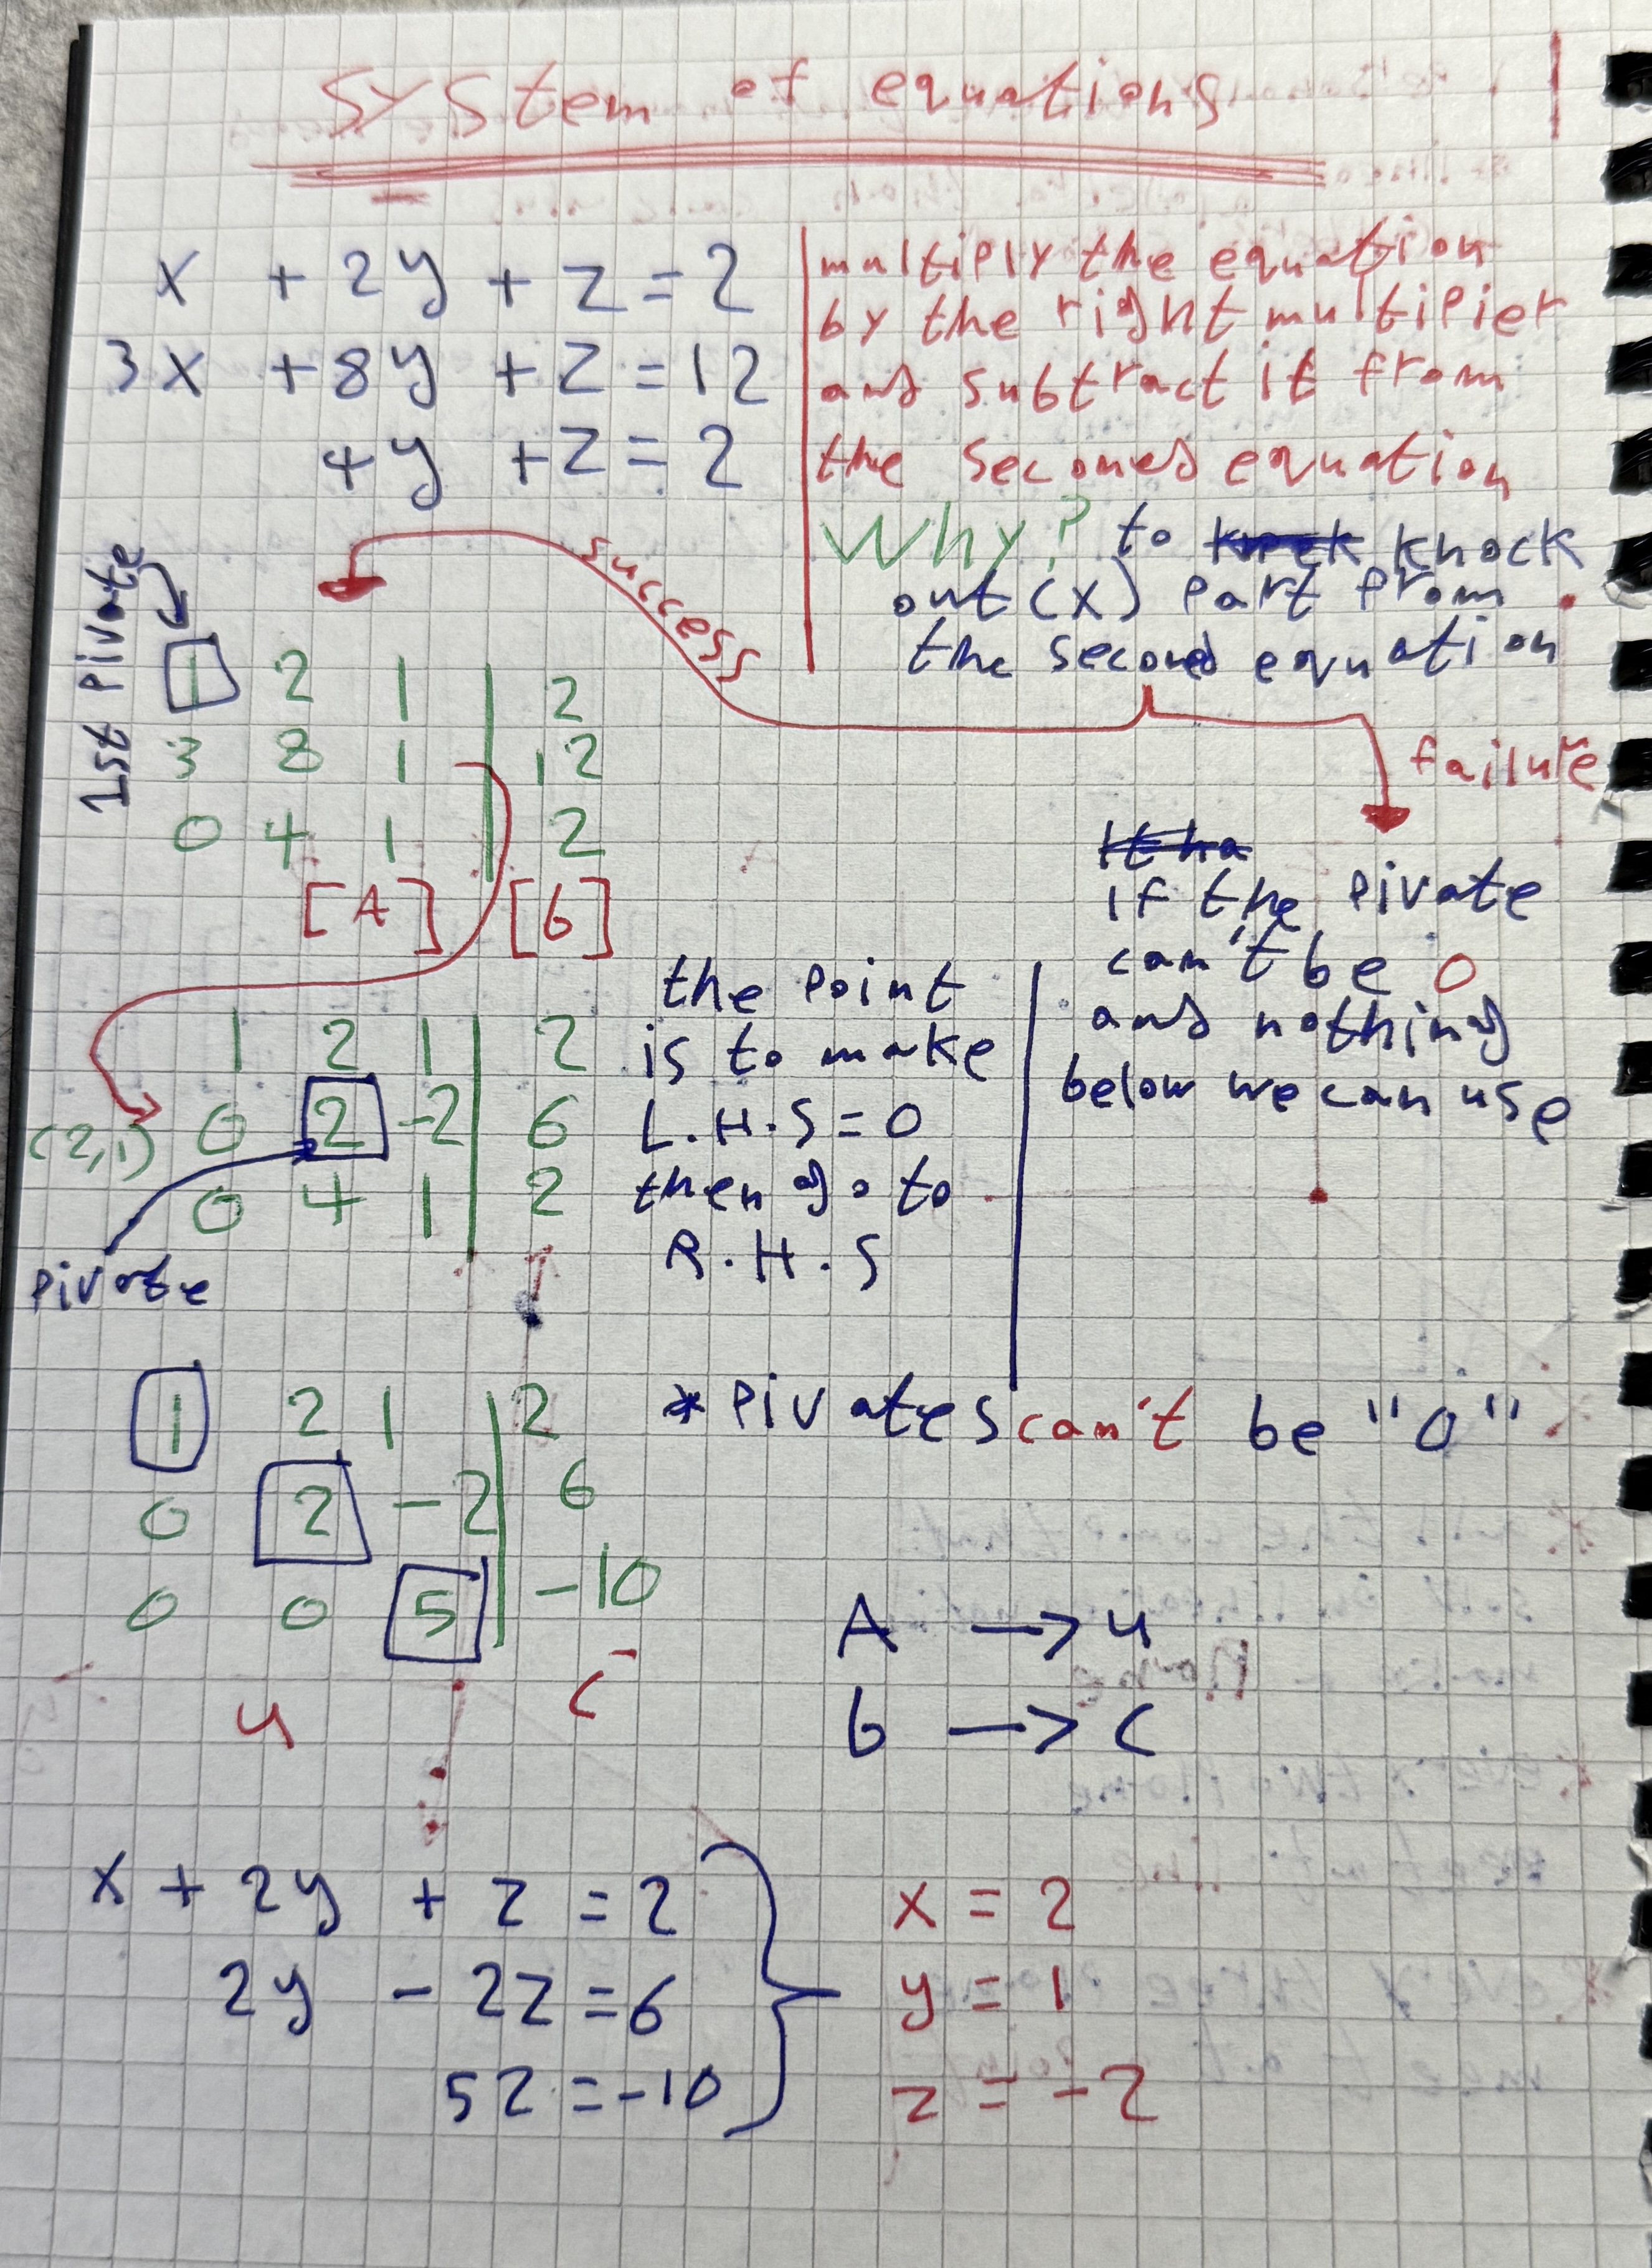 system of equations
x + 2y + z = 2
3x + 8y + z = 12
4y + z = 2
multiply the equation
by the right multipier
and subtract it from
the seconed equation
Why? to knock
out (x) part from
the second equation
success
failure
1st Pivate
1 2 1 | 2
3 8 1 | 12
0 4 1 | 2
[A] [b]
if the pivate
can't be 0
and nothing
below we can use
1 2 1 | 2
(2,1) 0 2 -2 | 6
0 4 1 | 2
pivate
the point
is to make
L.H.S = 0
then go to
R.H.S
* Pivates can't be "0"
1 2 1 | 2
0 2 -2 | 6
0 0 5 | -10
u c
A → u
b → c
x + 2y + z = 2
2y - 2z = 6
5z = -10
x = 2
y = 1
z = -2